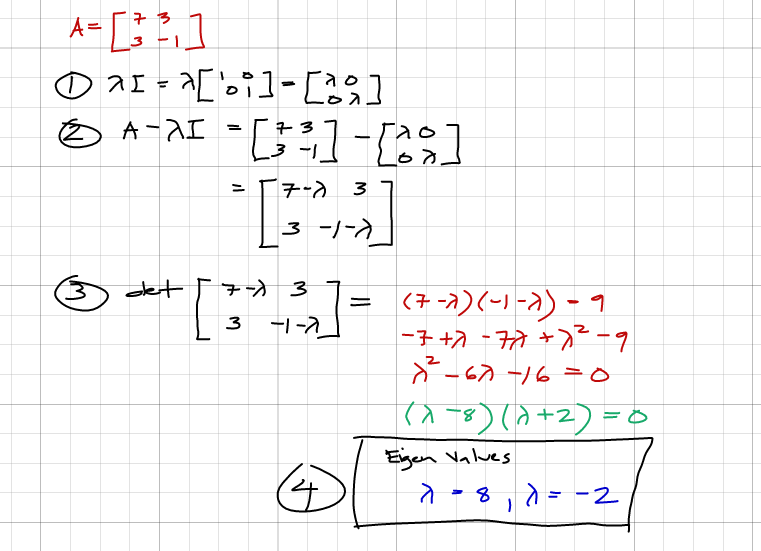 A = [7 3
3 -1]
① λI = λ[1 0
0 1] = [λ 0
0 λ]
② A - λI = [7 3
3 -1] - [λ 0
0 λ]
= [7-λ 3
3 -1-λ]
③ det [7-λ 3
3 -1-λ] = (7-λ)(-1-λ) - 9
-7+λ-7λ+λ²-9
λ²-6λ-16=0
(λ-8)(λ+2)=0
④ Eigen Values
λ = 8, λ = -2